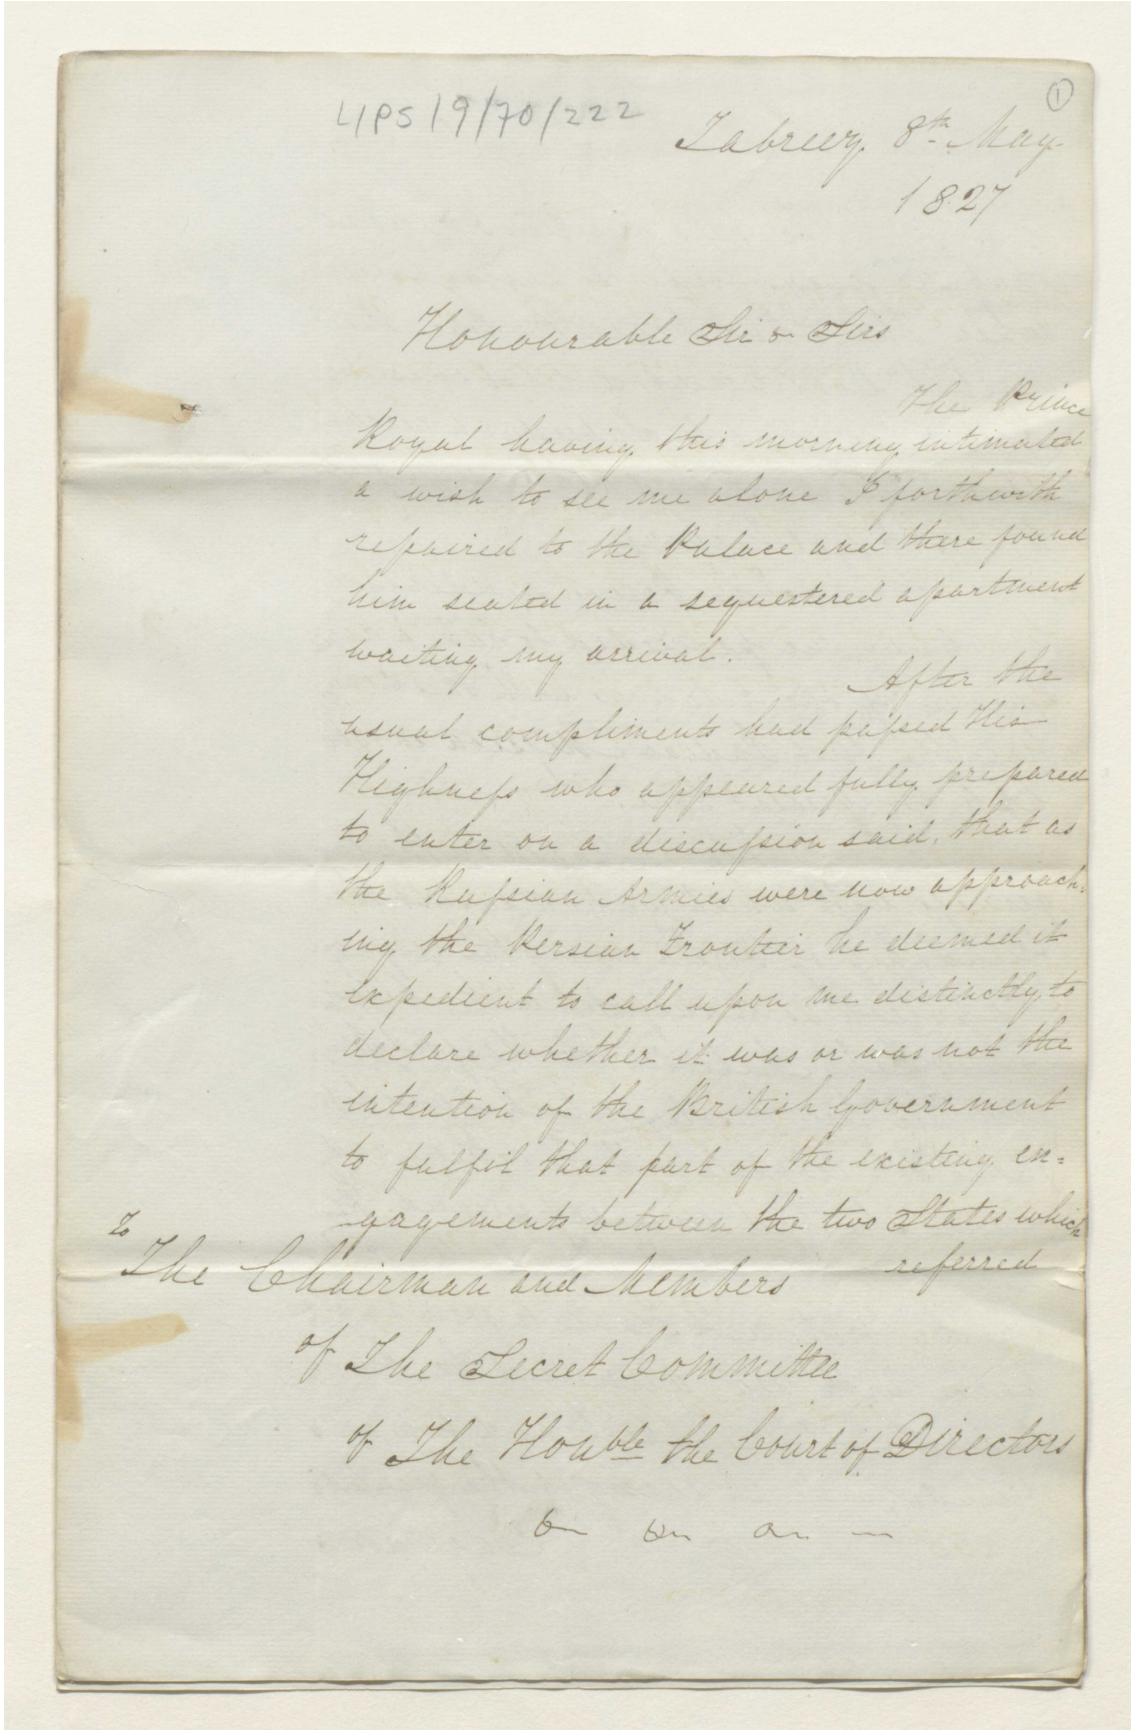 L/PS/9/70/222
1
Tabreez. 8th May
1827
Honourable Sir & Sirs
The Prince
Royal having this morning intimated
a wish to see me alone I forthwith
repaired to the Palace and there found
him seated in a sequestered apartment
waiting my arrival.
After the
usual compliments had passed His
Highness who appeared fully prepared
to enter on a discussion said, that as
the Russian Armies were now approach=
ing the Persian Frontier he deemed it
expedient to call upon me distinctly to
declare whether it was or was not the
intention of the British Government
to fulfil that part of the existing en=
gagements between the two States which
referred
To
The Chairman and Members
of The Secret Committee
of The Honble the Court of Directors
&c &c &c